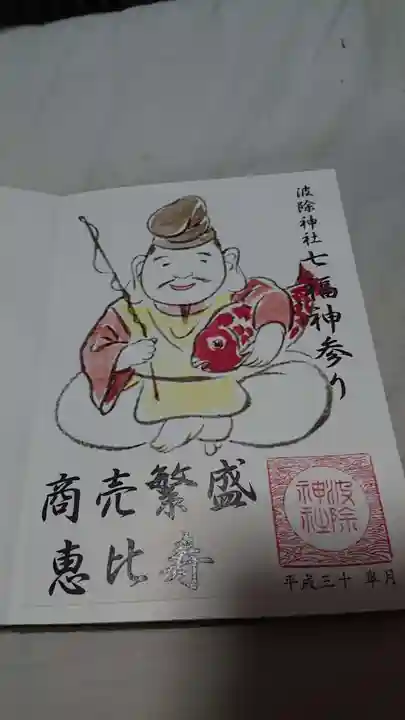 波除神社
七福神参り
商売繁盛
恵比寿
波除
神社
平成三十 皐月